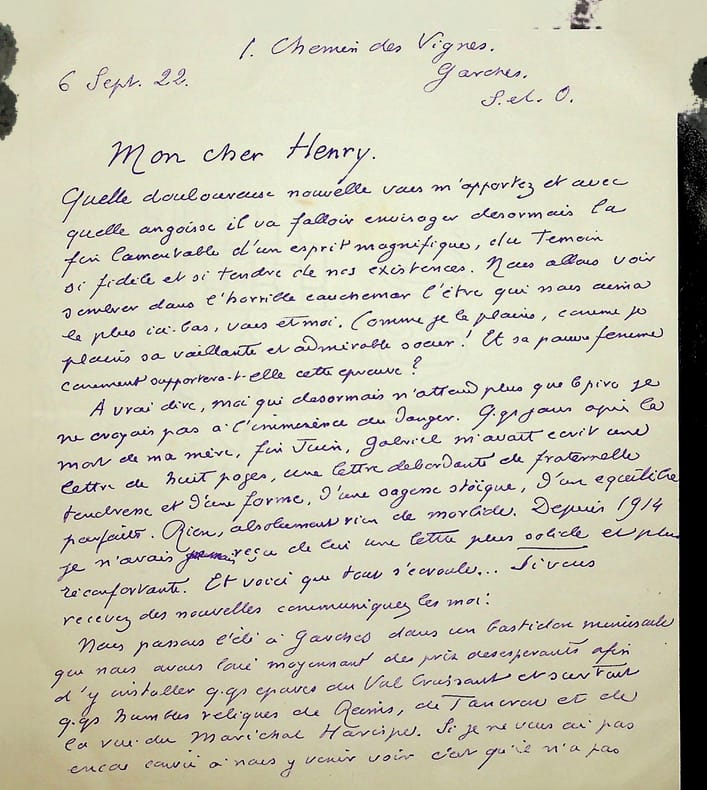 1. Chemin des Vignes.
6 Sept. 22.
Garches.
S. et. O.
Mon cher Henry.
Quelle douloureuse nouvelle vous m'apportez et avec
quelle angoisse il va falloir envisager desormais la
fin lamentable d'un esprit magnifique, du Temoin
si fidèle et si tendre de nos existences. Nous allons voir
sombrer dans l'horrible cauchemar l'être qui nous aima
le plus ici-bas, vous et moi. Comme je le plains, comme je
plains sa vaillante et admirable soeur! Et sa pauvre femme
comment supportera-t-elle cette epreuve?
À vrai dire, moi qui desormais n'attend plus que le pire je
ne croyais pas à l'imminence du Danger. Qqs jours après la
mort de ma mère, fin Juin, Gabriel m'avait ecrit une
lettre de huit pages, une lettre debordante de fraternelle
tendresse et d'une forme, d'une sagesse stoïque, d'un equilibre
parfaits. Rien, absolument rien de morbide. Depuis 1914
je n'avais reçu de lui une lettre plus solide et plus
réconfortante. Et voici que tout s'ecroule... Si vous
recevez des nouvelles communiquez les moi.
Nous passons l'été à Garches dans un bastidon minuscule
que nous avons loué moyennant des prix desesperants afin
d'y installer q.qs epaves du Val Croissant et surtout
q.qs humbles reliques de Reims, de et de
la rue du Maréchal Harispe. Si je ne vous ai pas
encore convié à nous y venir voir c'est qu'il n'a pas